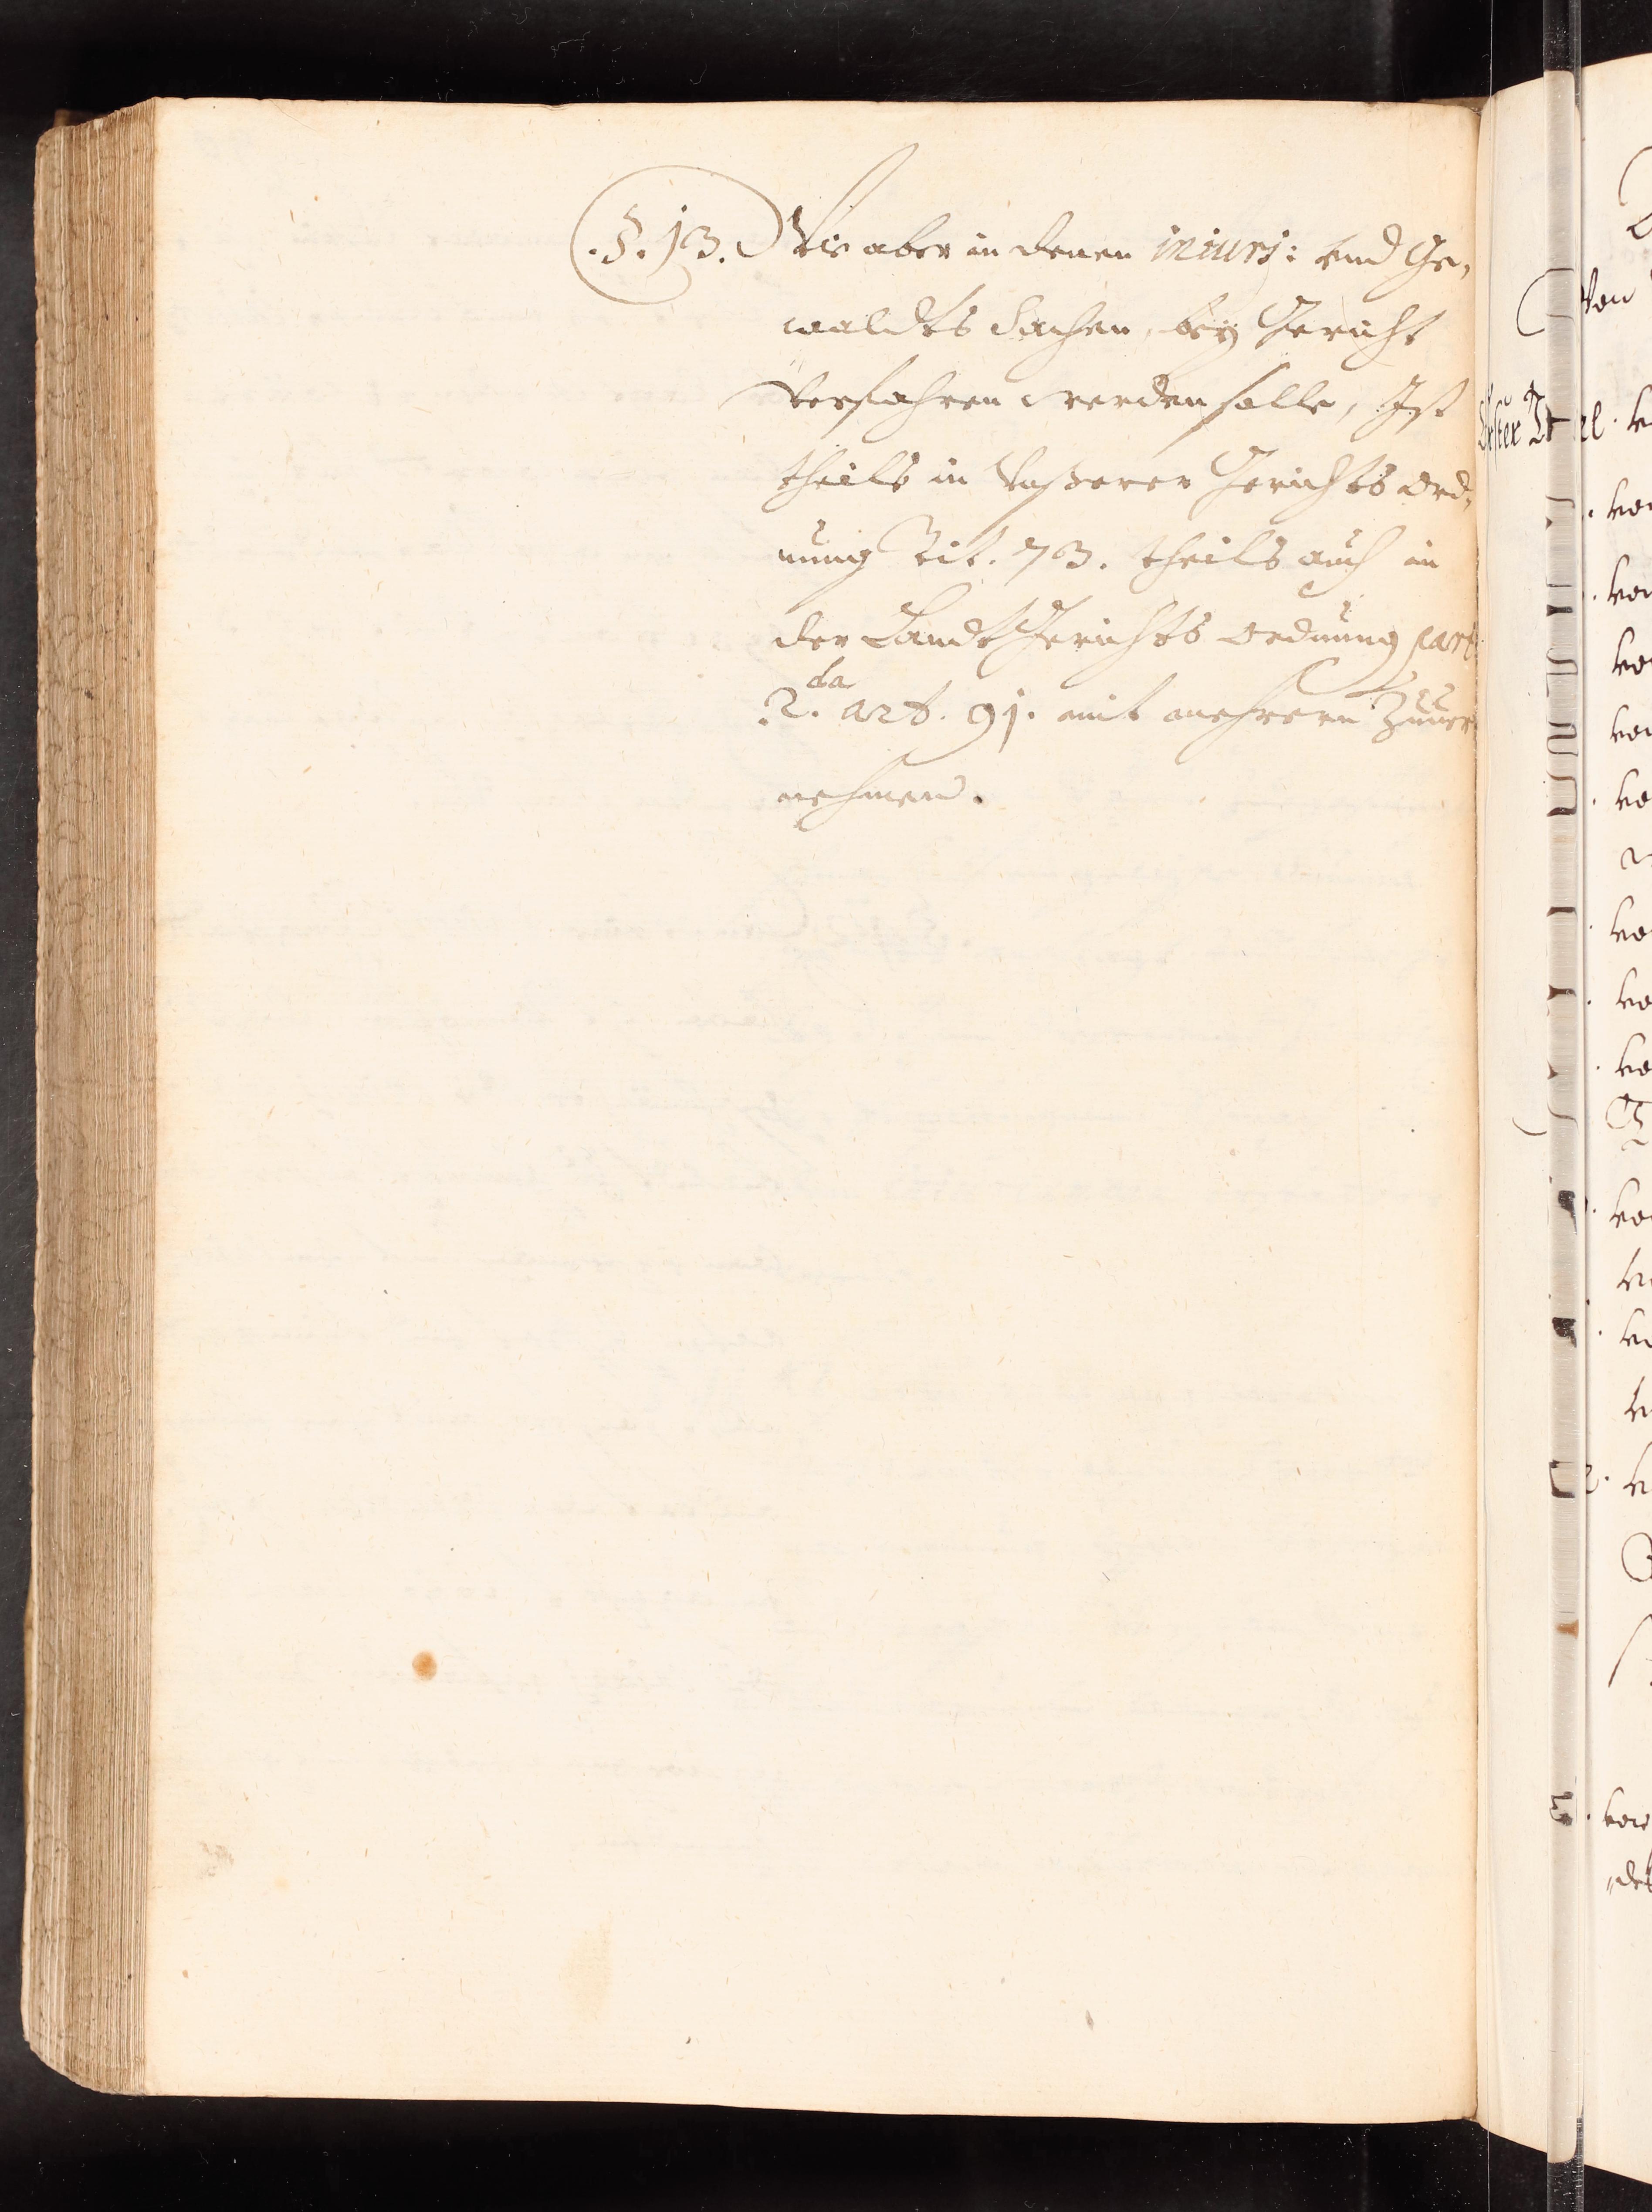 .§. 13. Wie aber in denen iniurj: vnd Ge,
waldts Sachen, beÿ Gericht
verfahren werden solle, Ist
theils in Vnßerer Gerichts Ord,
nung Tit. 73. theils auch in
der Landt Gerichts Ordnung part:
.2.da art. 91. mit mehrern Zuuer
nehmen.